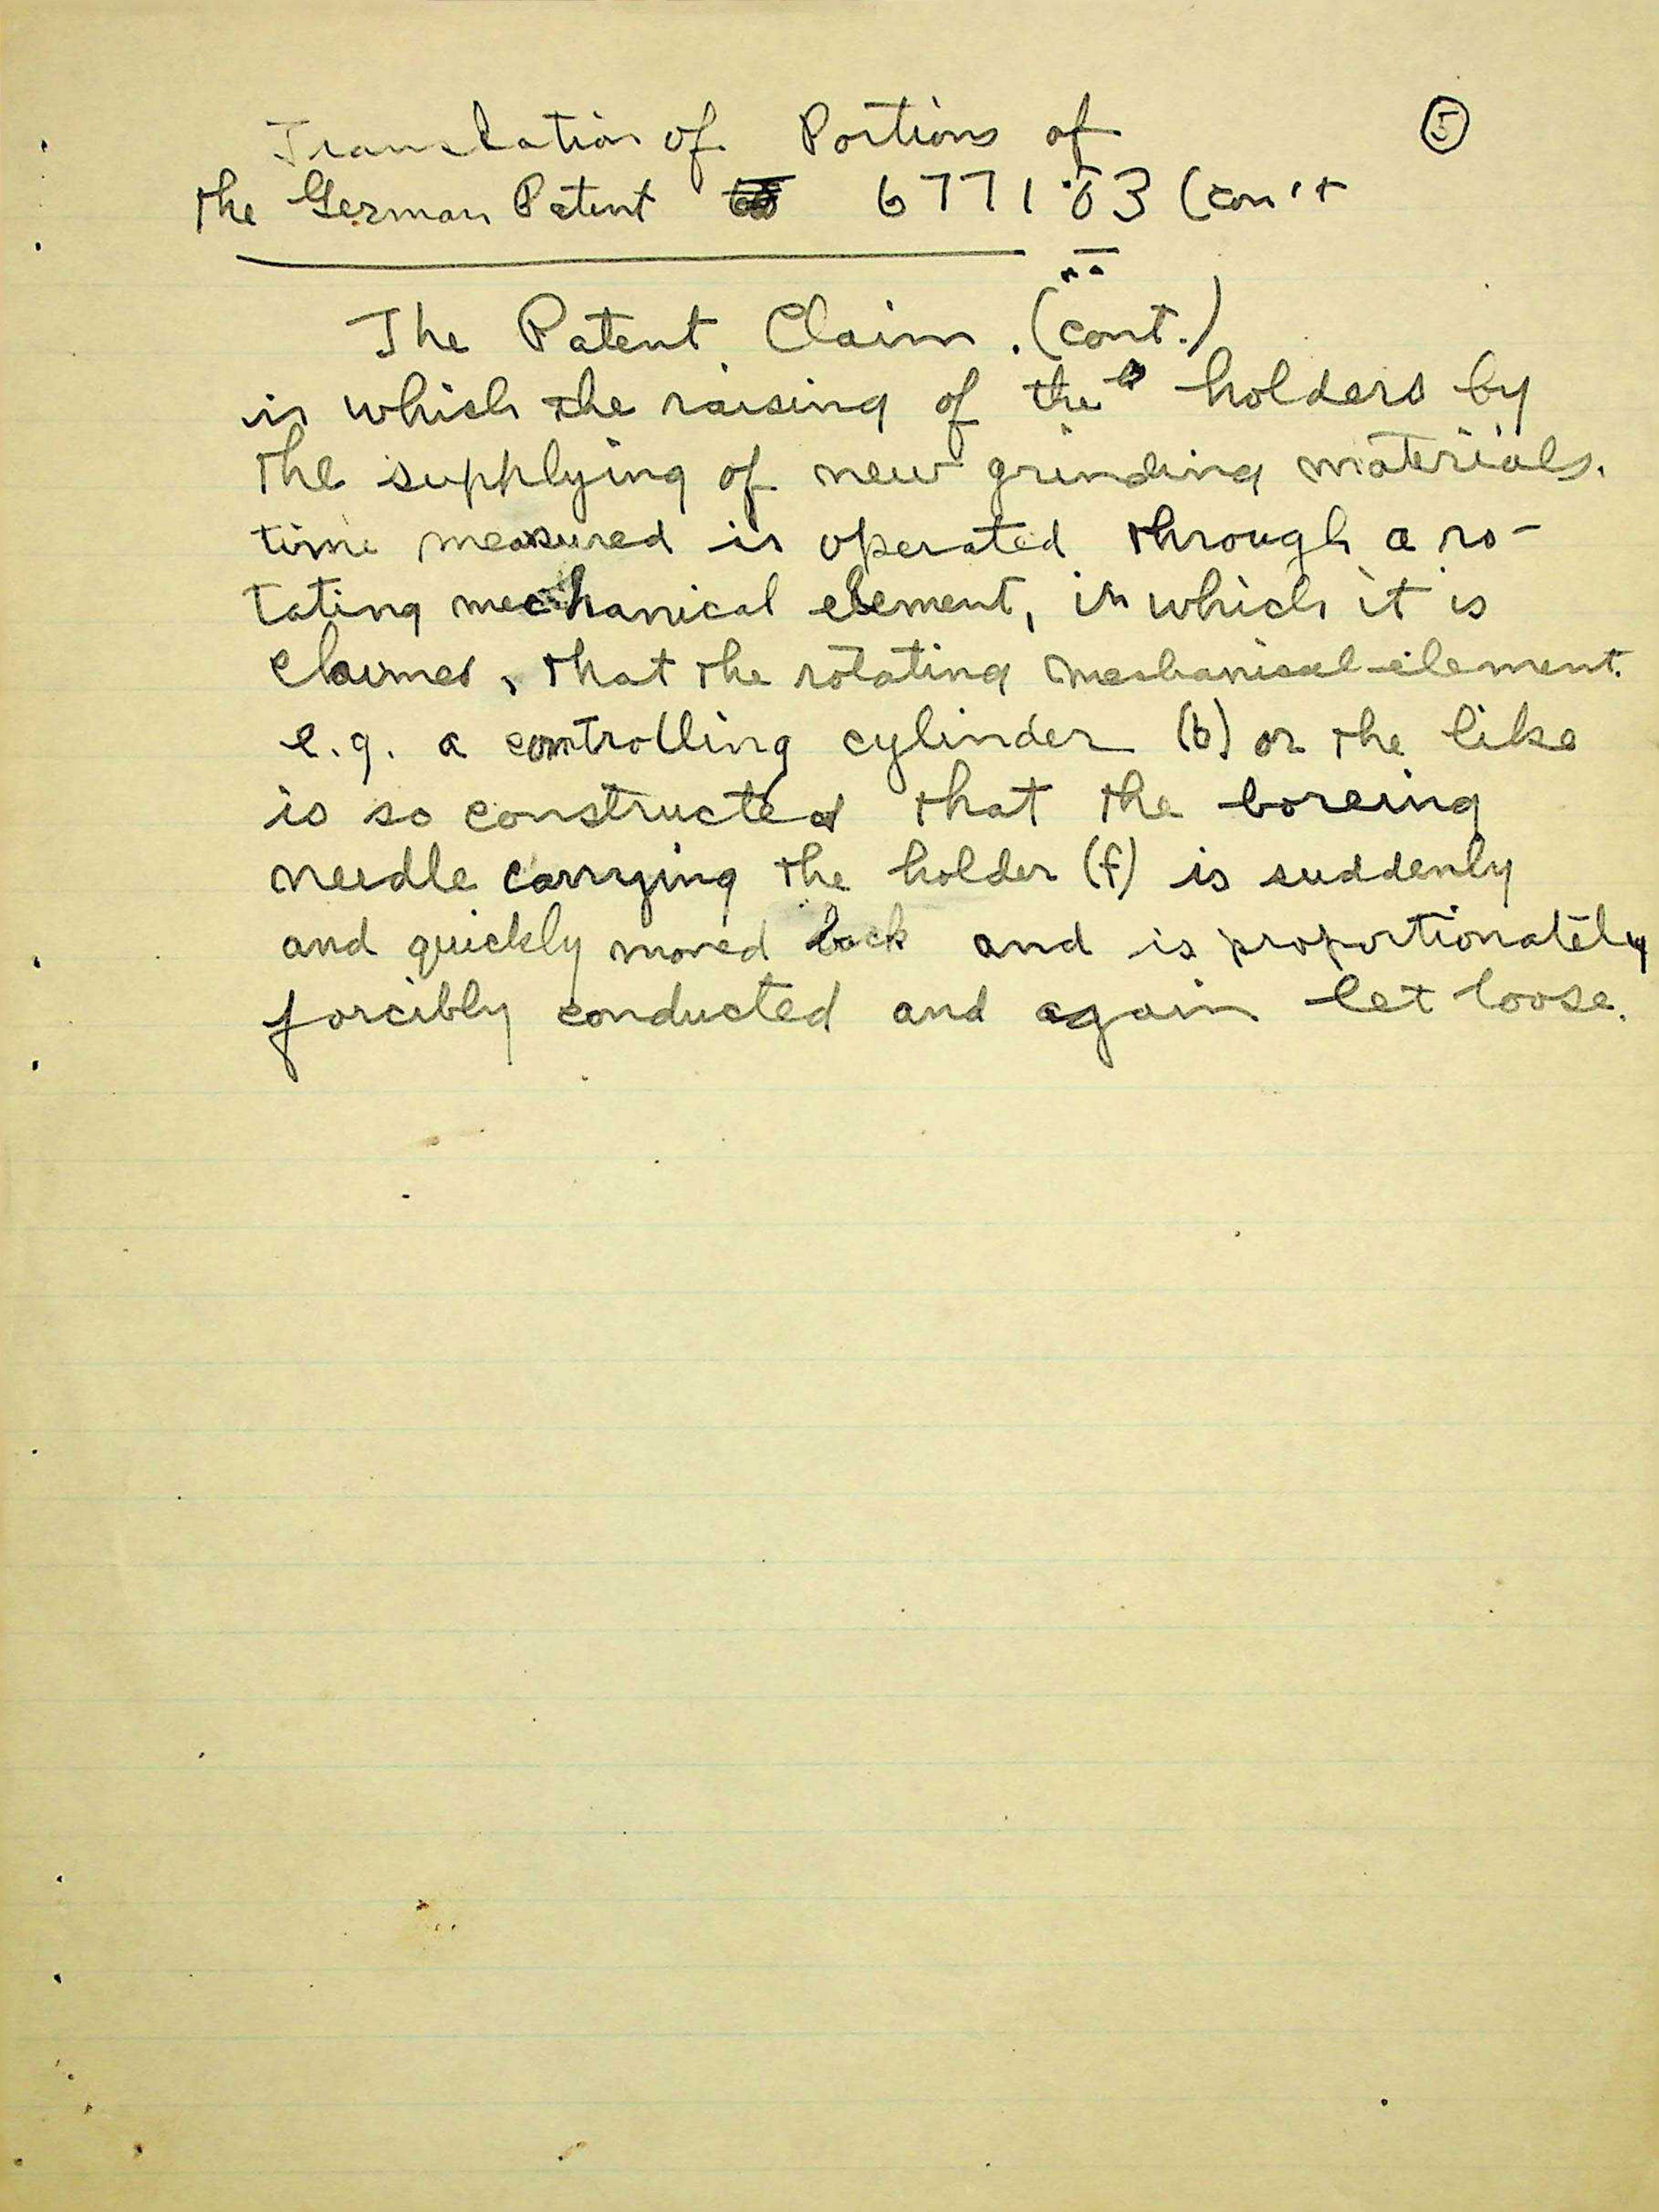 Translation of Portions of ⑤
the German Patent 677103 (con't
The Patent Claim. (cont.)
in which the raising of the holders by
the supplying of new grinding materials.
time measured is operated through a ro-
tating mechanical element, in which it is
claimed, that the rotating mechanical element.
e.g. a controlling cylinder (b) or the like
is so constructed that the boreing
needle carrying the holder (f) is suddenly
and quickly moved back and is proportionately
forcibly conducted and again let loose.